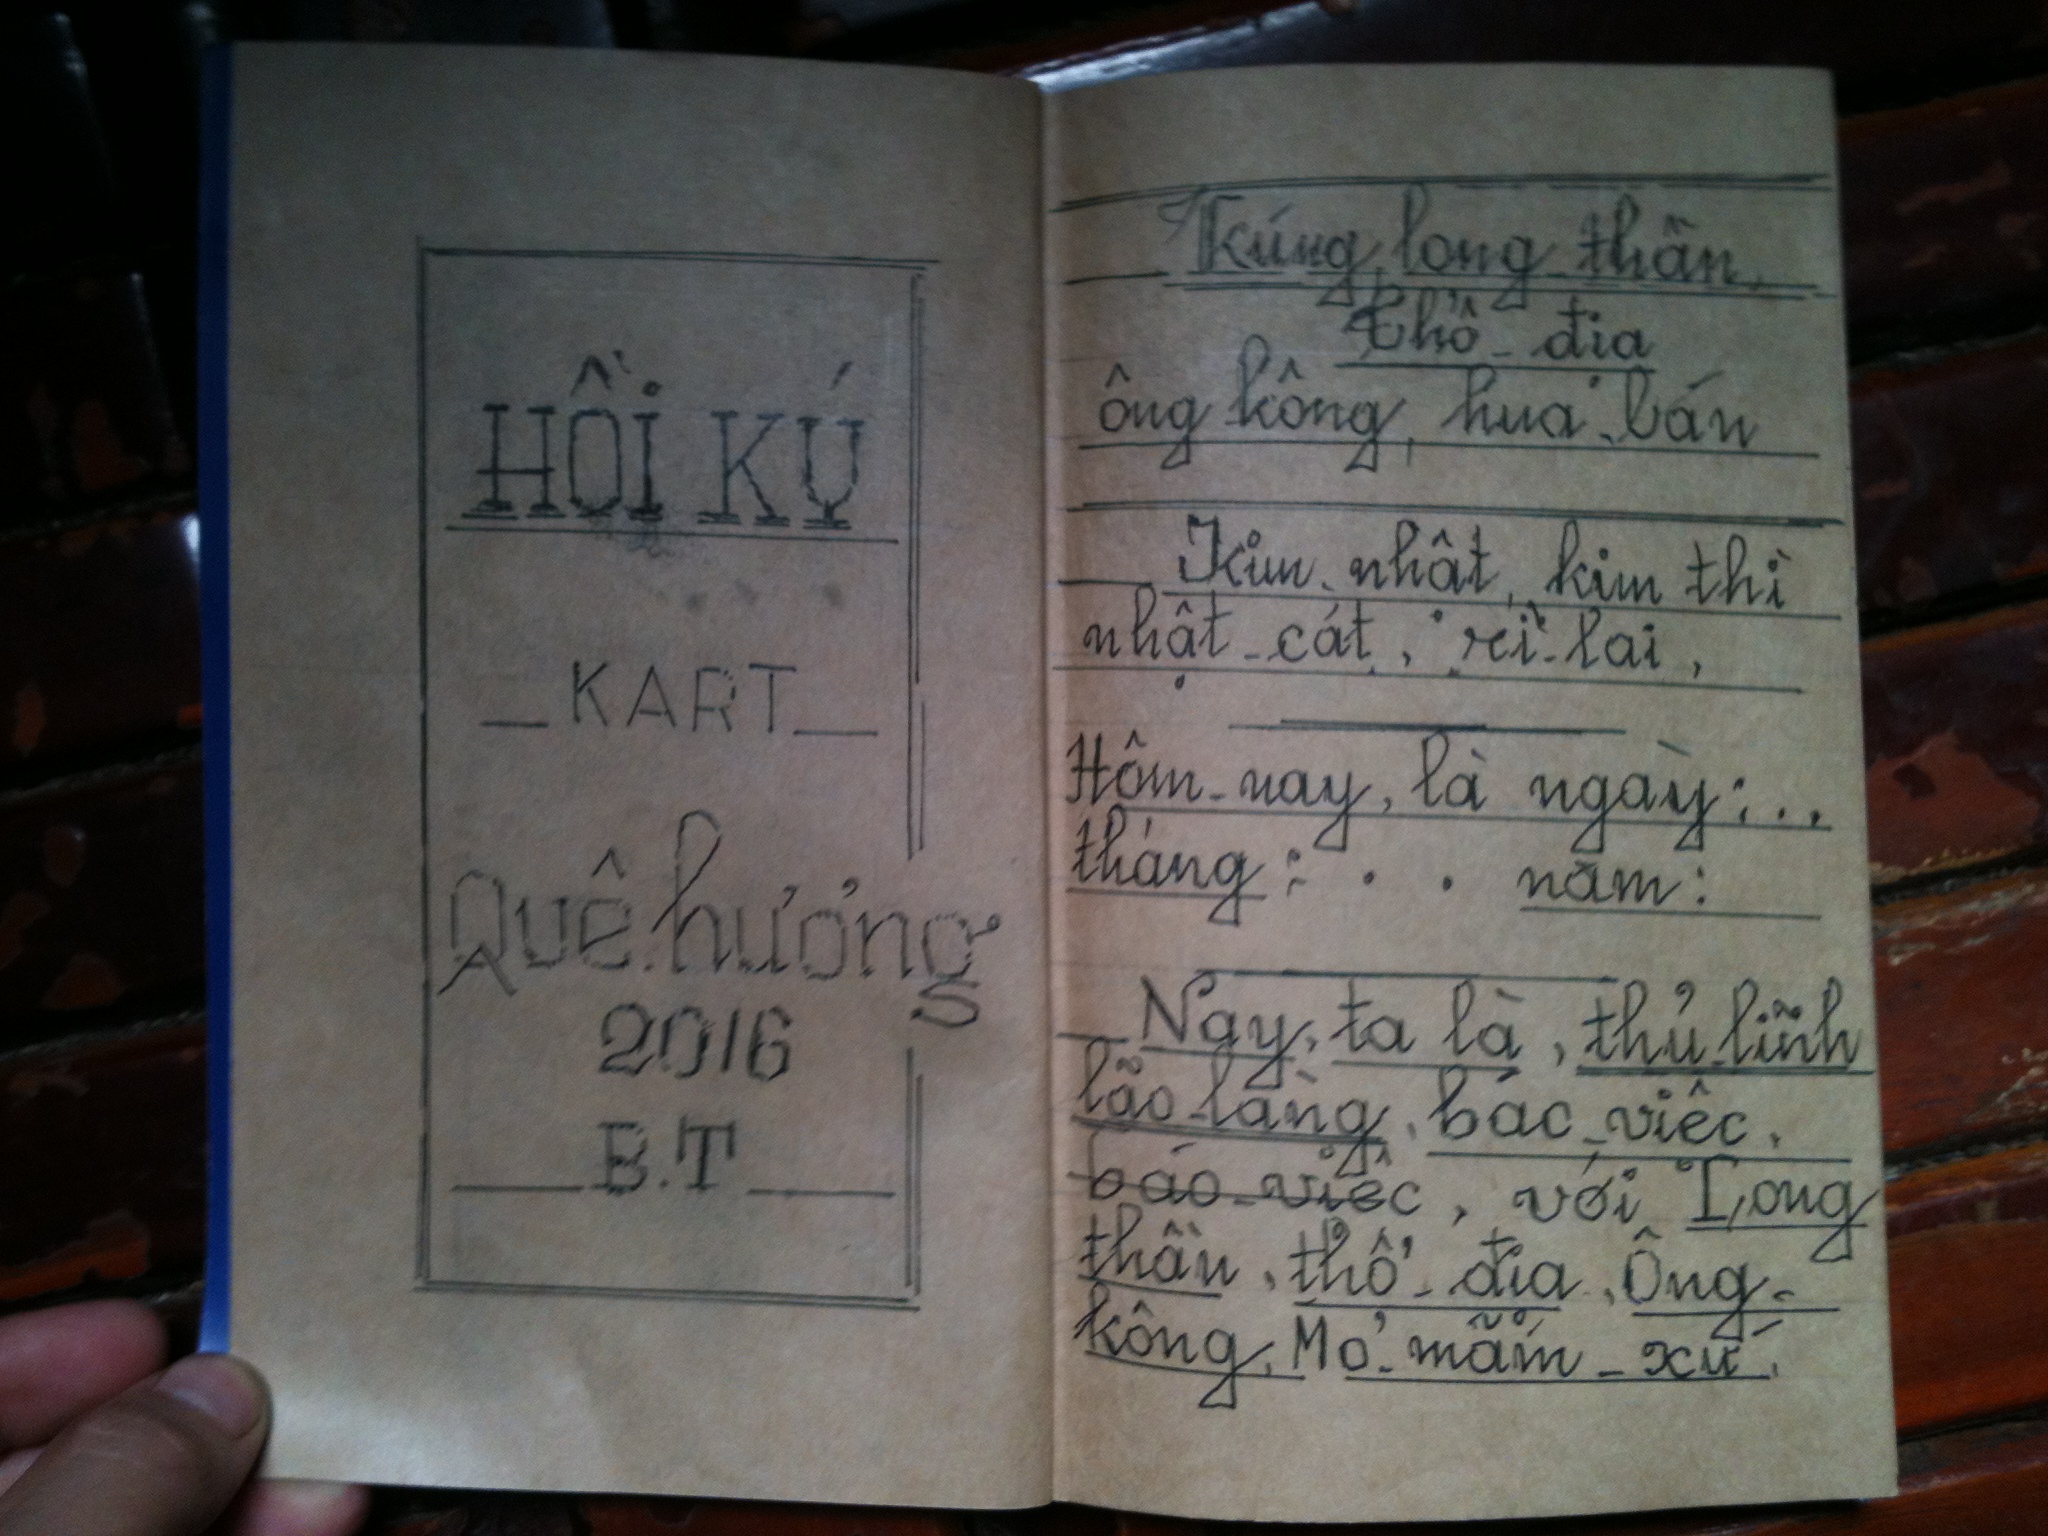 HỒI KÝ
KART
Quê hương
2016
B.T
Kúng, long thần,
thổ địa
ông kông, hua bán
Kim nhật, kim thì
nhật cát, rì lai,
Hôm nay, là ngày: . .
tháng: . . năm:
Nay, ta là, thủ lĩnh
lão làng, bác việc,
báo việc, với Long
thần, thổ địa, Ông
kông, Mỏ mắm xứ,